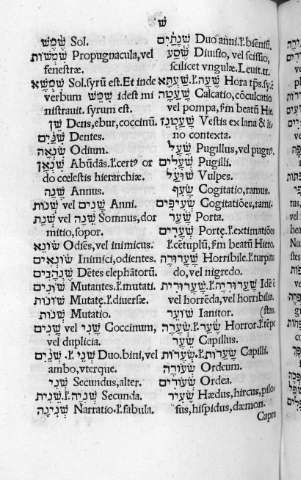 ש
שֶׁמֶשׁ Sol.
שְׁמָשׁוֹת Propugnacula, vel
fenestræ.
שִׁמְשָׁא Sol. syrū est. Et inde
verbum שַׁמֵּשׁ idest mi
nistrauit. syrum est.
שֵׁן Dens, ebur, coccinū.
שִׁנַּיִם Dentes.
שִׂנְאָה Odium.
שִׁנְאָן
do cœlestis hierarchiæ.
שָׁנָה Annus.
שָׁנִים vel שְׁנוֹת Anni.
שֵׁנָה vel שֵׁנָא Somnus, dor
mitio, sopor.
שׂוֹנֵא Odiēs, vel inimicus.
שׂוֹנְאִים Inimici, odientes.
שֶׁנְהַבִּים Dētes elephātorū.
שׁוֹנִים Mutantes. l'. mutati.
שׁוֹנוֹת Mutatę. l'. diuersæ.
Mutatio.
שָׁנִים vel שָׁנִי Coccinum,
vel duplicia.
שְׁנַיִם l'. שְׁנֵי Duo, bini, vel
ambo, vterque.
שֵׁנִי Secundus, alter.
שֵׁנִית l'. שְׁנִיָּה Secunda.
שְׁנִינָה Narratio. l'. fabula.
שְׁנָתַיִם Duo anni. l'. bienniū.
שֶׁסַע Diuisio, vel scissio,
scilicet vngulæ. Leuit.
שָׁעָה l'. שַׁעְתָּא Hora
Calcatio, cōculcatio
vel pompa, fm beatū Hie.
שַׁעַטְנֵז Vestis ex lana & li
no contexta.
שֹׁעַל Pugillus, vel
שְׁעָלִים Pugilli.
שׁוּעָל Vulpes.
Cogitatio, ramus.
Cogitatiōes, rami.
שַׁעַר Porta.
שְׁעָרִים Portę. l'. extimatiōes
l'. cētuplū, fm beatū Hiero.
שַׁעֲרוּרָה Horribile. l'. turpitu
do, vel nigredo.
שַׁעֲרוּרִיָּה Idē
vel horrēda, vel horribilis.
שׁוֹעֵר Ianitor
שַׂעַר l'. שְׂעָרָה Horror. l'.
שֵׂעָר Capillus.
שְׂעָרִים l'. שְׂעָרוֹת Capilli.
שְׂעוֹרָה Ordeum.
שְׂעוֹרִים Ordea.
שָׂעִיר Hædus, hircus, pilo
sus, hispidus, dæmon.
Capra